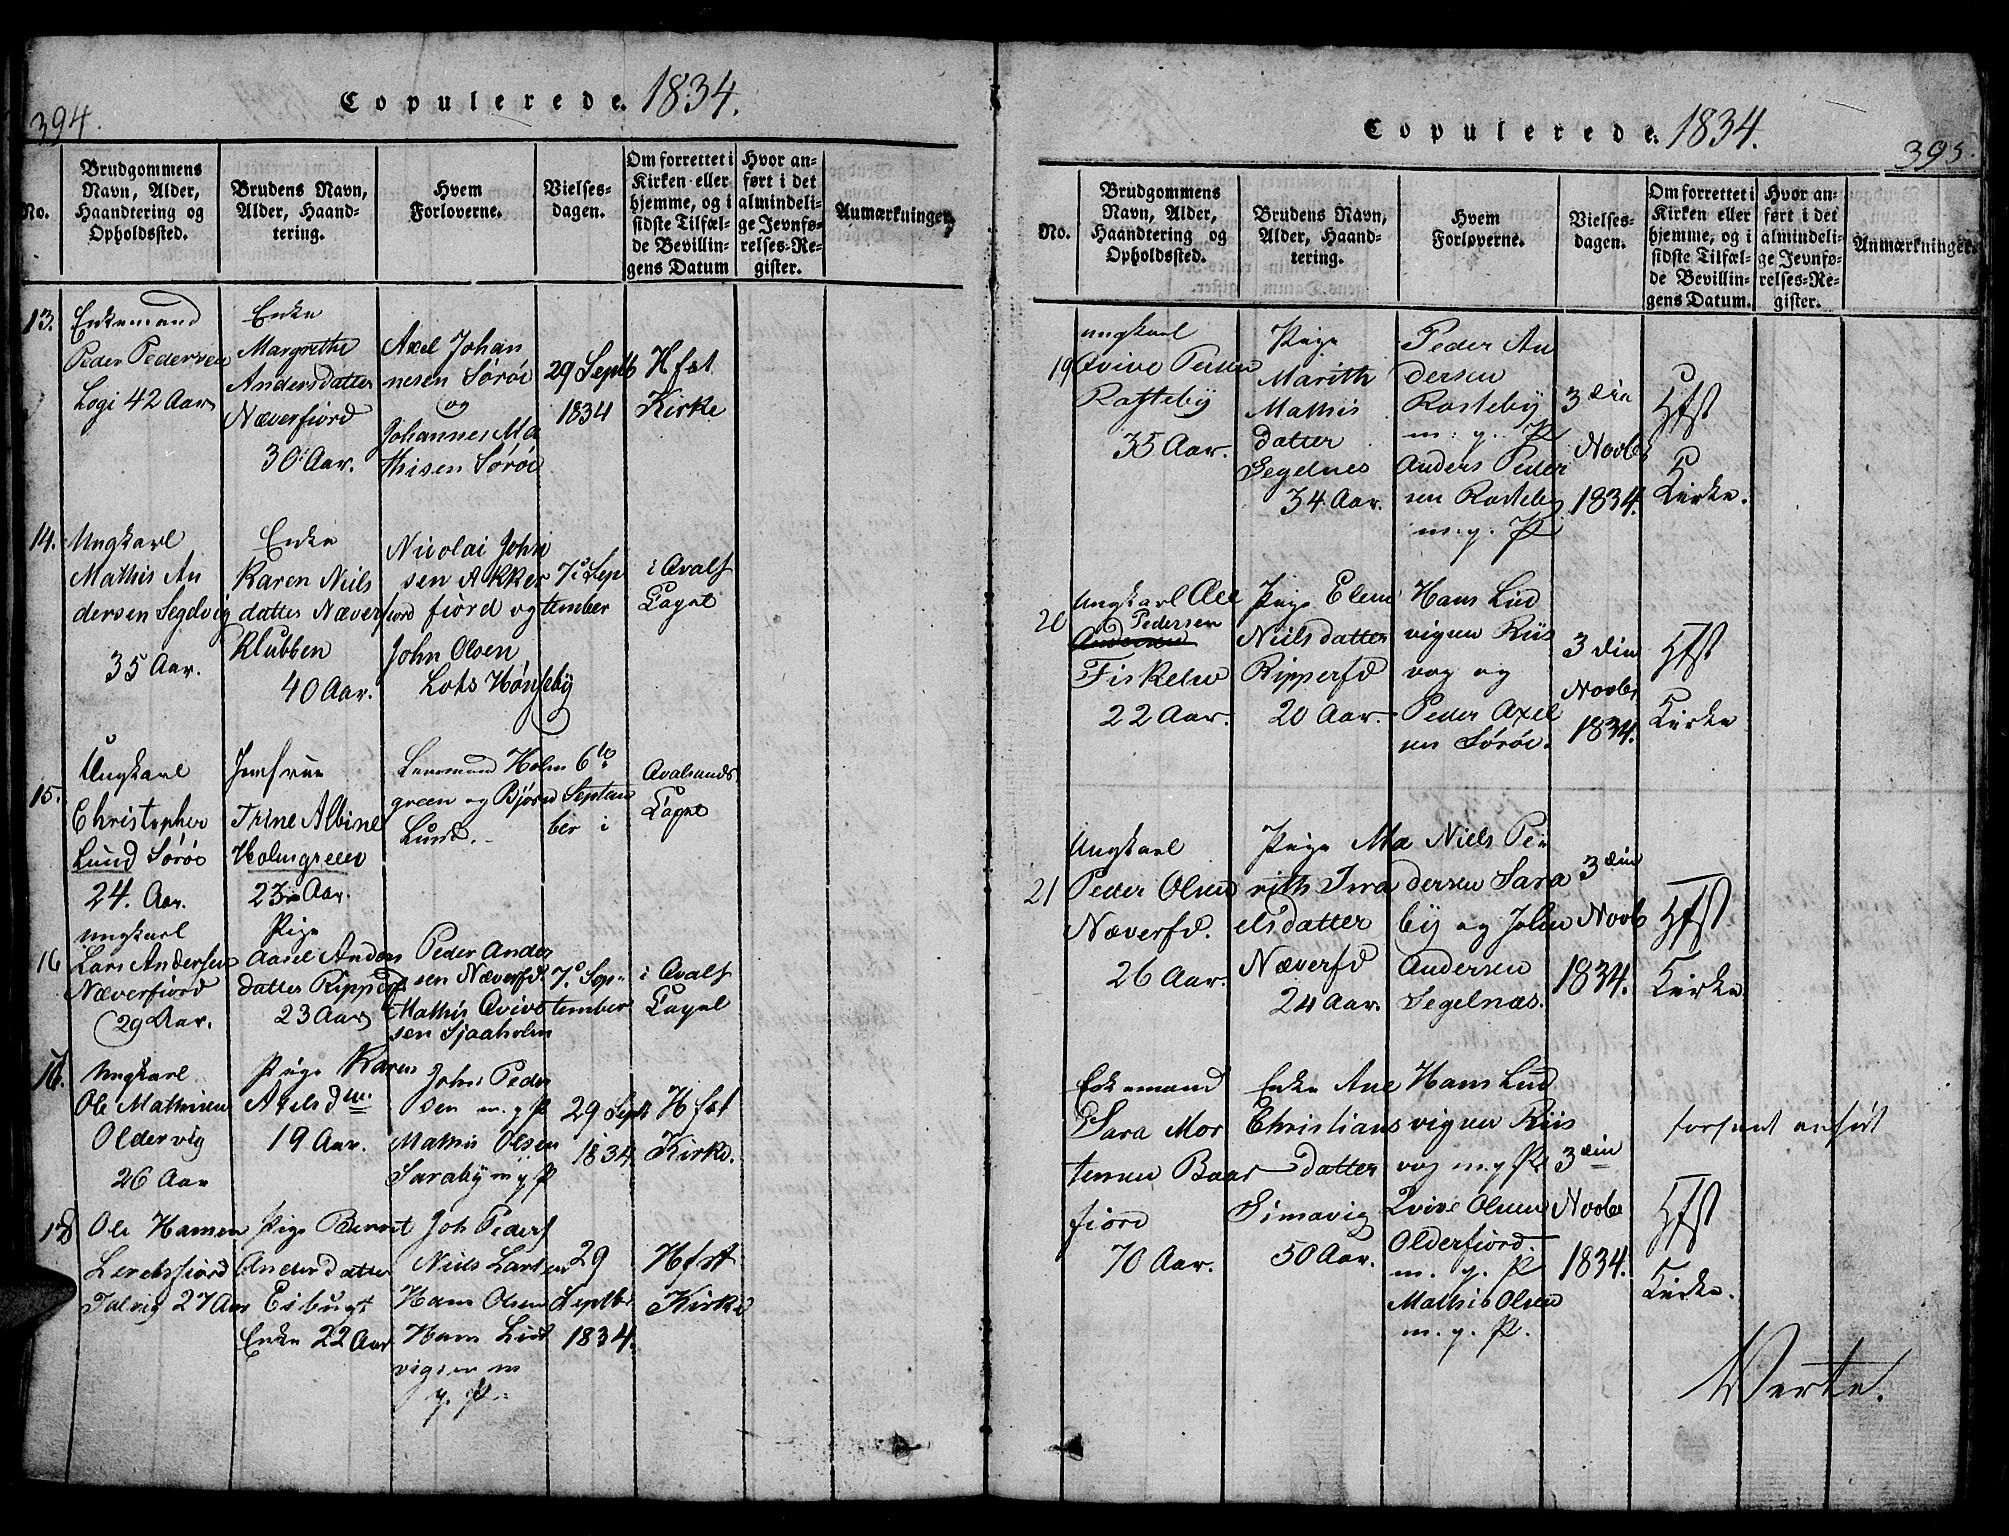 394.
Copulerede. 1834.
No.
Brudgommens
Navn, Alder,
Haandtering og
Opholdssted.
Brudens Navn,
Alder, Haand-
tering.
Hvem
Forloverne.
Vielses-
dagen.
Om forrettet i
Kirken eller
hjemme, og i
sidste Tilfæl-
de Bevillin-
gens Datum
Hvor an-
ført i det
almindeli-
ge Jevnfø-
relses-Re-
gister.
Anmærkninger.
13.
Enkemand
Peder Pedersen
Logi 42 Aar
Enke
Margrethe
Andersdatter
Næverfiord
30 Aar.
Axel Johan
nesen Sørøe
og
Johannes Ma
thisen Sørøe
29 Septb
1834
Hfst
Kirke
14.
Ungkarl
Mathis An
dersen Segelvig
35 Aar.
Enke
Karen Niils
datter Næverfiord
Klubben
40 Aar.
Nicolai John
sen Akker
fiord og
John Olsen
Lots Hønseby
7de Sep
tember
i Qvalf
Capel
15.
Ungkarl
Christopher
Lund Sørøe
24. Aar.
Jomfrue
Trine Albine
Holmgreen
23 Aar.
Lensmand Holm
green og Bjørn
Lund.
6te
Septem
ber i
Qvalsunds
Capel
16
Ungkarl
Lars Andersen
Næverfiord
29 Aar.
Pige
Aasel Anders
datter Ripperf
23 Aar
Peder Ander
sen Næverfd.
Mathis Qvive
sen Sjaaholm
7de Sep-
tember
i Qvalf
Capel
17.
Ungkarl
Ole Mathisen
Oldervig
26 Aar
Pige Karen
Axels dtr.
19 Aar.
John Peder
sen m. y P
Mathis Olsen
Saraby m y P
29 Sept
1834
Hfst
Kirke.
18
Ole Hansen
Lerretsfiord
27 Aar
Pige Berret
Anders datter
Eibugt
Enke 22 Aar
Joh Peders
Niels Larsen
Hans Olsen
Hans Lud
vigsen m
y. P.
29
Septbr
1834.
Hfst
Kirke
Copulerede. 1834.
395.
No.
Brudgommens
Navn, Alder,
Haandtering og
Opholdssted.
Brudens Navn,
Alder, Haand-
tering.
Hvem
Forloverne.
Vielses-
dagen.
Om forrettet i
Kirken eller
hjemme, og i
sidste Tilfæl-
de Bevillin-
gens Datum.
Hvor an-
ført i det
almindeli-
ge Jevnfø-
relses-Re-
gister.
Anmærkninger.
19
Ungkarl
Qvive Peersen
Rasteby
35 Aar.
Pige
Marith
Mathis
datter
Segelnes
34 Aar.
Peder An
dersen
Rasteby
m. y. P
Anders Peder
sen Rasteby
m. y. P
3 die
Novbr
1834.
Hfst
Kirke.
20
Ungkarl Ole
Pedersen
Andersen
Fiskelve
22 Aar.
Pige Elen
Nielsdatter
Ripperfd
20 Aar.
Hans Lud
vigsen Riis
vog og
Peder Axel
sen Sørøe.
3 die
Novbr
1834.
Hfst
Kirke
21
Ungkarl
Peder Olsen
Næverfd.
26 Aar.
Pige Ma
rith Isra
elsdatter
Næverfd
24 Aar.
Niels Pe
dersen Sara
by og John
Andersen
Segelnæs.
3 die
Novb
1834.
Hfst
Kirke
Enkemand
Sara Mor
tensen Baas
fiord
70 Aar.
Enke Ane
Christians
datter
Simavig
50 Aar.
Hans Lud
vigsen Riis
vog m. y P
Qvive Olsen
Olderfiord.
m. y. P
Mathis Olsen
m. y. P.
3 die
Novbr
1834.
forsent anført
Hfst
Kirke.
Verte.